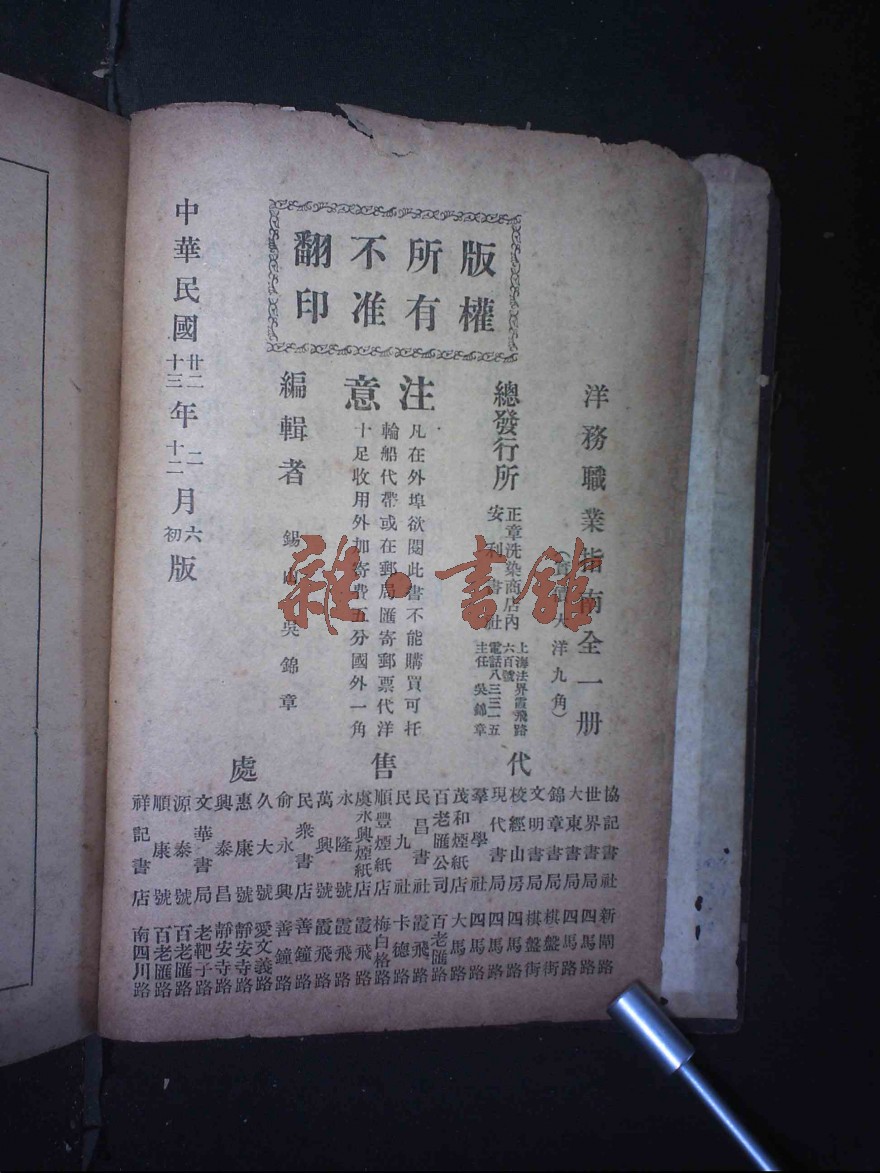 版權
所有
不准
翻印
洋務職業指南全一册
大洋九角)
總發行所
正章洗染商店內
安利書社
上海法界霞飛路
六百號
電話八三三一五
主任 吳錦章
注意
凡在外埠欲閱此書不能購買可托
輪船代帶或在郵局匯寄郵票代洋
十足收用外加寄費五分國外一角
編輯者 錫山吳錦章
中華民國廿二十三年二十二月六初版
代售處
協記書社 新閘路
世界書局 四馬路
大東書局 四馬路
錦章書局 棋盤街
文明書局 棋盤街
校經山房 四馬路
現代書局 四馬路
羣學社 四馬路
茂和煙紙店 大馬路
百老匯公司 百老匯路
民昌書社 霞飛路
民九社 卡德路
順豐煙紙店 梅白格路
虞永興煙紙店 霞飛路
永隆號 霞飛路
萬興號 霞飛路
民衆書店 善鐘路
俞永興 善鐘路
久大號 愛文義路
惠康號 靜安寺路
興泰昌 靜安寺路
文華書局 老靶子路
源泰號 百老匯路
順康號 百老匯路
祥記書店 南四川路
雜·書館